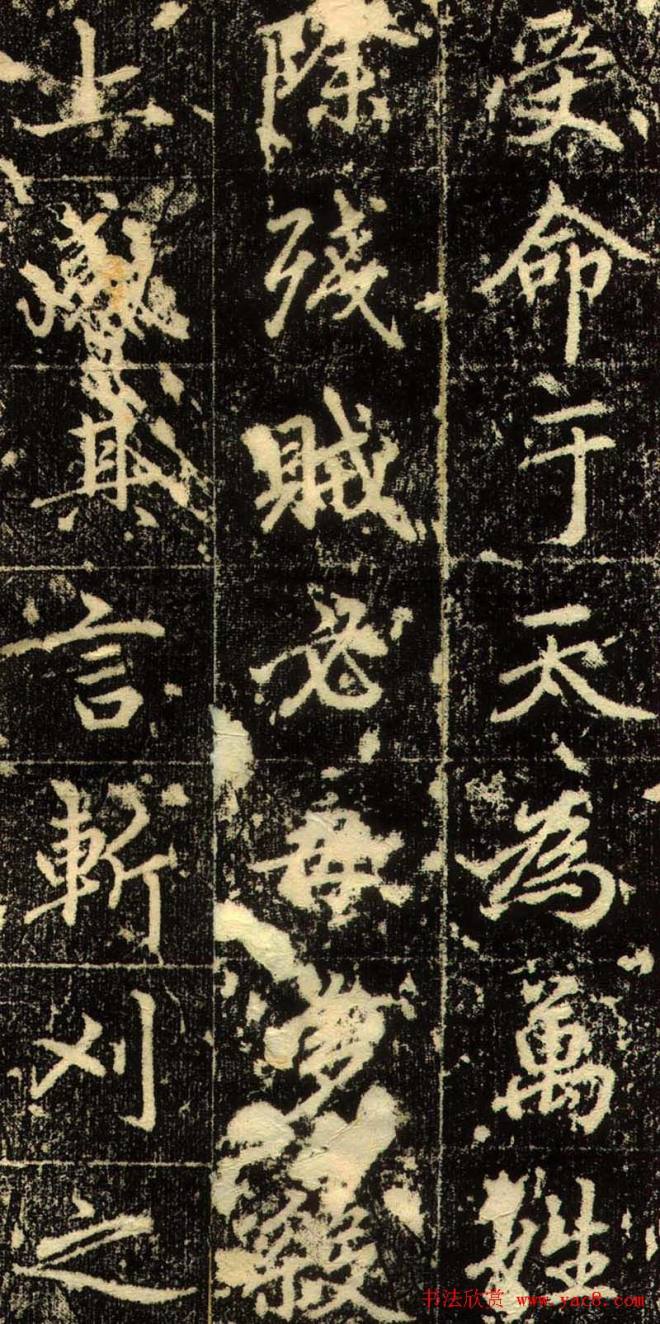 受命于天為萬姓
除殘賊必毋多殺
上贊其言斬刈之
书法欣赏 www.yac8.com